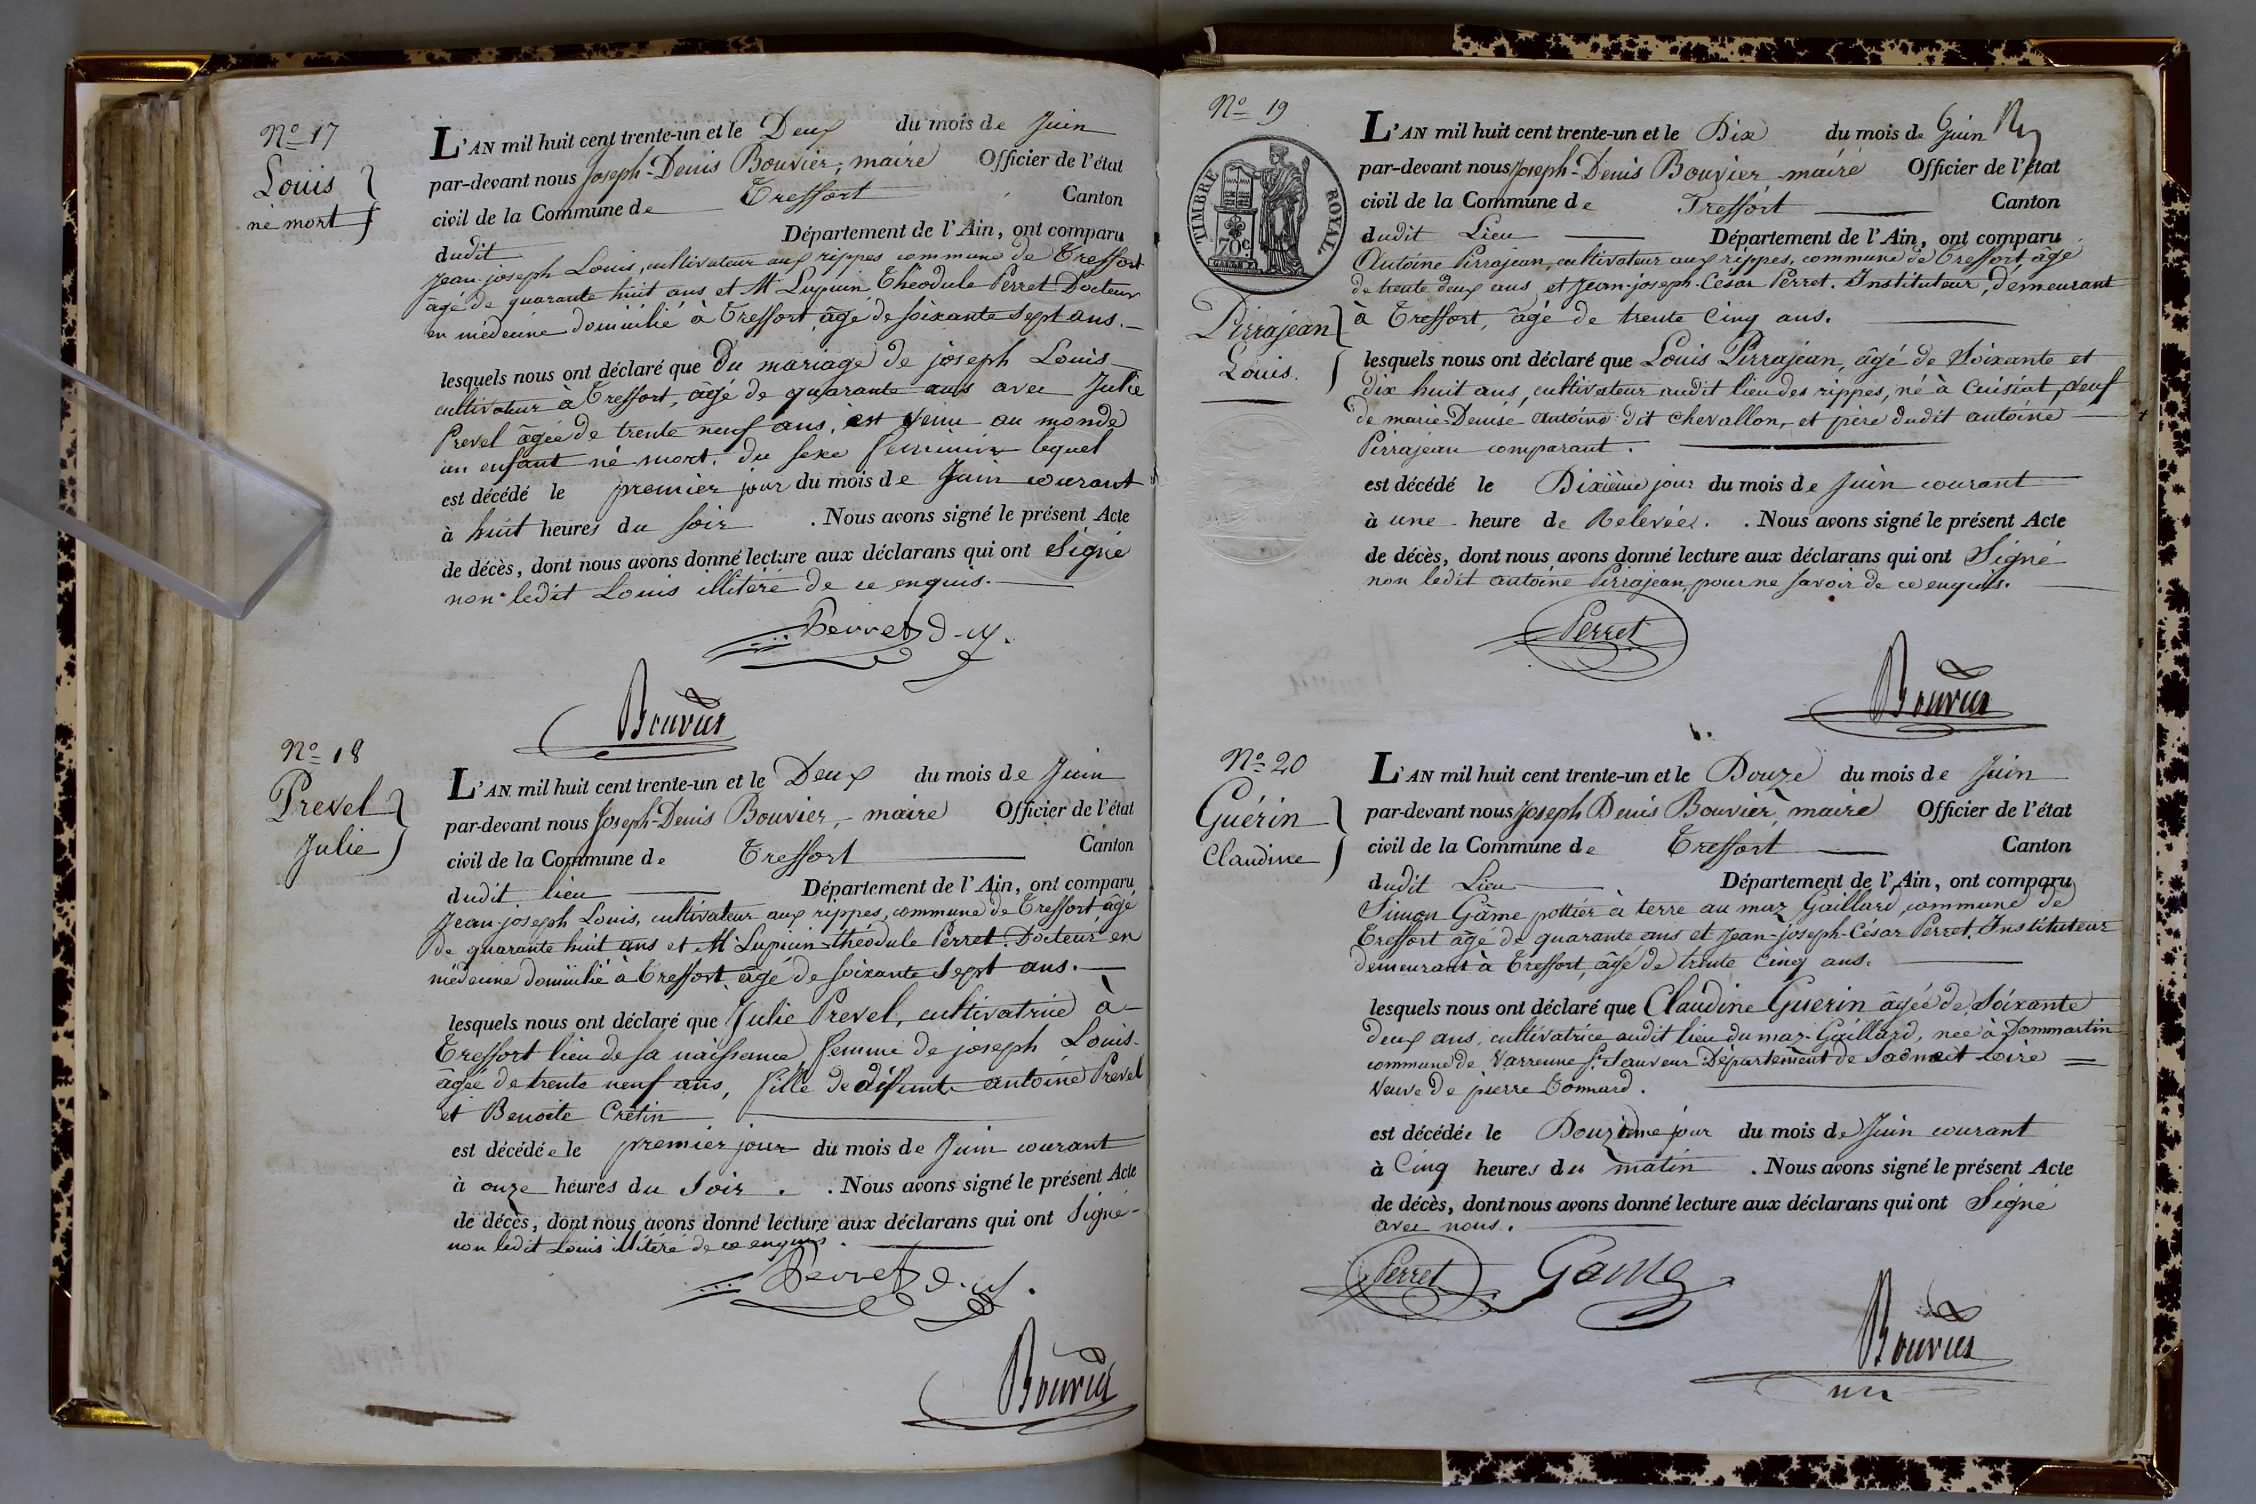 No 17
Louis
né mort
L'AN mil huit cent trente-un et le Deux du mois de Juin
par-devant nous Joseph-Denis Bouvier, maire Officier de l'état
civil de la Commune de Treffort Canton
dudit Département de l'Ain, ont comparu
Jean-joseph Louis, cultivateur aux rippes commune de Treffort
âgé de quarante huit ans et Mr Lupicin Théodule Perret Docteur
en médecine domicilié à Treffort âgé de soixante sept ans.
lesquels nous ont déclaré que Du mariage de joseph Louis
cultivateur à Treffort, âgé de quarante ans avec Julie
Prevel âgée de trente neuf ans, est venu au monde
un enfant né mort, du sexe féminin lequel
est décédé le premier jour du mois de Juin courant
à huit heures du soir . Nous avons signé le présent Acte
de décès, dont nous avons donné lecture aux déclarans qui ont Signé
non ledit Louis illitéré de ce enquis.
Perret d. m.
Bouvier
No 18
Prevel
Julie
L'AN mil huit cent trente-un et le Deux du mois de Juin
par-devant nous Joseph-Denis Bouvier, maire Officier de l'état
civil de la Commune de Treffort Canton
dudit lieu Département de l'Ain, ont comparu
Jean-joseph Louis, cultivateur aux rippes, commune de Treffort âgé
de quarante huit ans et Mr Lupicin-théodule Perret Docteur en
médecine domicilié à Treffort âgé de soixante sept ans.
lesquels nous ont déclaré que Julie Prevel, cultivatrice à
Treffort lieu de sa naissance, femme de joseph Louis
âgée de trente neuf ans, fille de défunt antoine Prevel
et Benoite Cretin
est décédée le premier jour du mois de Juin courant
à onze heures du Soir . . Nous avons signé le présent Acte
de décès, dont nous avons donné lecture aux déclarans qui ont Signé
non ledit Louis illitéré de ce enquis.
Perret d. m.
Bouvier
No 19
TIMBRE ROYAL
70c
Pirrajean
Louis.
L'AN mil huit cent trente-un et le Dix du mois de Juin
par-devant nous Joseph-Denis Bouvier maire Officier de l'état
civil de la Commune de Treffort Canton
dudit Lieu Département de l'Ain, ont comparu
Antoine Pirrajean, cultivateur aux rippes, commune de Treffort, âgé
de trente deux ans et Jean-joseph-César Perret. Instituteur, demeurant
à Treffort, âgé de trente cinq ans.
lesquels nous ont déclaré que Louis Pirrajean, âgé de Soixante et
dix huit ans, cultivateur audit lieu des rippes, né à Cuisiat, veuf
de marie-Denise Antoine dit chevallon, et père dudit antoine
Pirrajean comparant.
est décédé le Dixième jour du mois de Juin courant
à une heure de Relevée. . Nous avons signé le présent Acte
de décès, dont nous avons donné lecture aux déclarans qui ont Signé
non ledit antoine Pirrajean, pour ne savoir de ce enquis.
Perret
Bouvier
No 20
Guérin
Claudine
L'AN mil huit cent trente-un et le Douze du mois de Juin
par-devant nous Joseph Denis Bouvier, maire Officier de l'état
civil de la Commune de Treffort Canton
dudit Lieu Département de l'Ain, ont comparu
Simon Gâme pottier à terre au maz Gaillard, commune de
Treffort âgé de quarante ans et Jean-joseph-César Perret. Instituteur
demeurant à Treffort, âgé de trente cinq ans.
lesquels nous ont déclaré que Claudine Guerin âgée de Soixante
deux ans, cultivatrice audit lieu du maz-Gaillard, née à Dommartin
commune de Varrenne St Sauveur Département de Saône et Loire
Veuve de pierre Connard.
est décédée le Douzième jour du mois de Juin courant
à Cinq heures du matin . Nous avons signé le présent Acte
de décès, dont nous avons donné lecture aux déclarans qui ont Signé
avec nous.
Perret Game
Bouvier